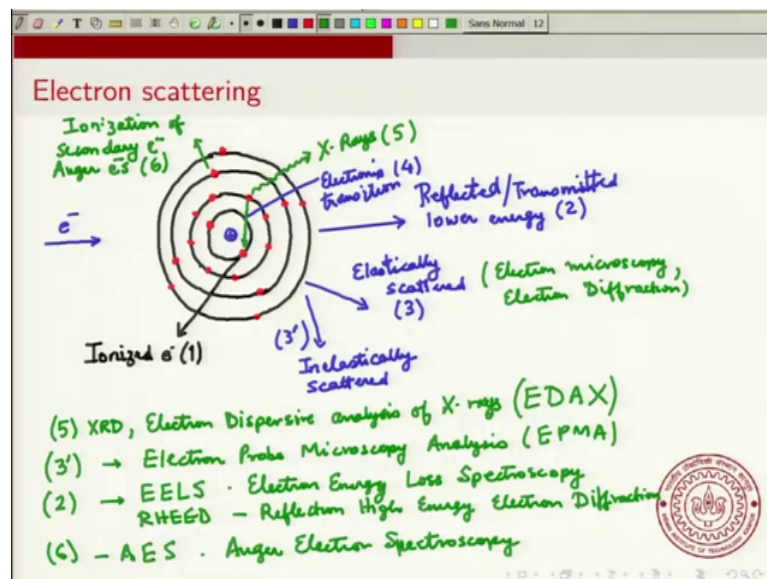 T
Sans Normal 12
Electron scattering
Ionization of
secondary e⁻
Auger e⁻s (6)
X-Rays (5)
Electronic (4)
transition
e⁻
Reflected/Transmitted
lower energy (2)
Elastically
scattered
(3)
(Electron microscopy,
Electron Diffraction)
(3')
Inelastically
scattered
Ionized e⁻ (1)
(5) XRD, Electron Dispersive analysis of X-rays (EDAX)
(3') → Electron Probe Microscopy Analysis (EPMA)
(2) → EELS - Electron Energy Loss Spectroscopy
RHEED - Reflection High Energy Electron Diffraction
(6) - AES - Auger Electron Spectroscopy